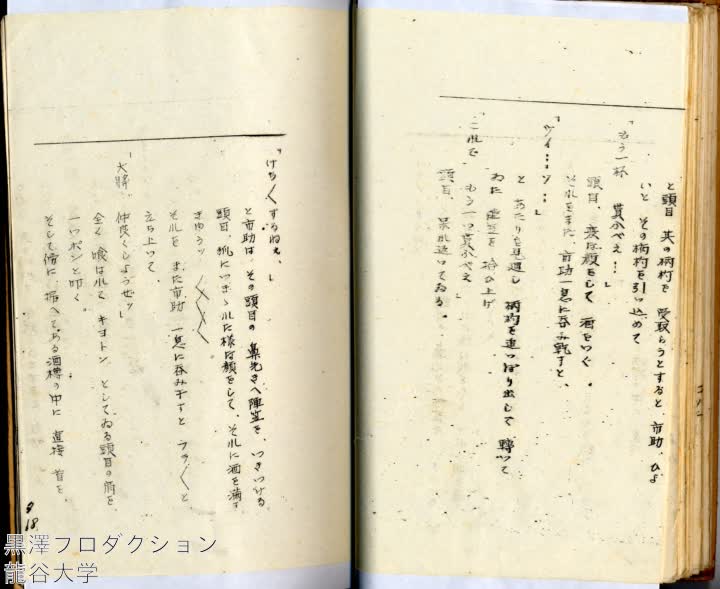 と頭目 其の柄杓を 受取らうとすると、市助、ひよ
いと その柄杓を引っ込めて
「もう一杯 貰かべえ…」
頭目、変な顔をして 酒をつぐ。
それをまた、市助一息に呑み乾すと、
「ヅイ……ゾ…」
と あたりを見廻し 柄杓を 轉つて
ゐた 陣笠を 拾ひ上げ
「これで
もう一つ貰かべえ」
頭目、呆れ返いてゐる。
「けち〱するねえ、」
と市助は、その頭目の 鼻先きへ陣笠を、つきつける
頭目、狐につまゝれた様な顔をして、それに酒を満す
きゅうッ 〱〱〱。
それを また市助 一息に呑み干すと フラ〱と
立ち上って、
「大将、仲良くしようぜッ」
全く 喰はれて キョトン としてゐる頭目の肩を
一ッポンと叩く。
そして 傍に 据へてある酒樽の中に 直接 首を、
9
18
黒澤プロダクション
龍谷大学